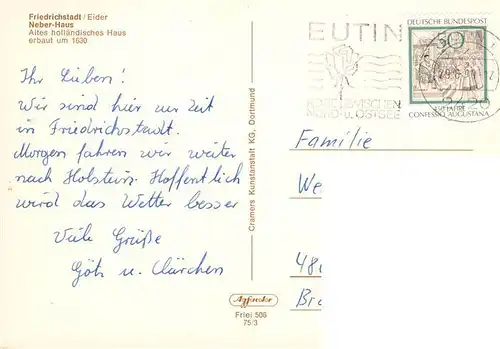 Friedrichstadt / Eider
Neber-Haus
Altes holländisches Haus
erbaut um 1630
Ihr Lieben!
Wir sind hier zur Zeit
in Friedrichstadt.
Morgen fahren wir weiter
nach Holstein. Hoffentlich
wird das Wetter besser
Viele Grüße
Götz u. Clärchen
Cramers Kunstanstalt KG, Dortmund
Agfacolor
Friei 506
75/3
EUTIN
ZWISCHEN
NORD- u. OSTSEE
DEUTSCHE BUNDESPOST
50
2420
450 JAHRE
CONFESSIO AUGUSTANA
Familie
We
48
Br